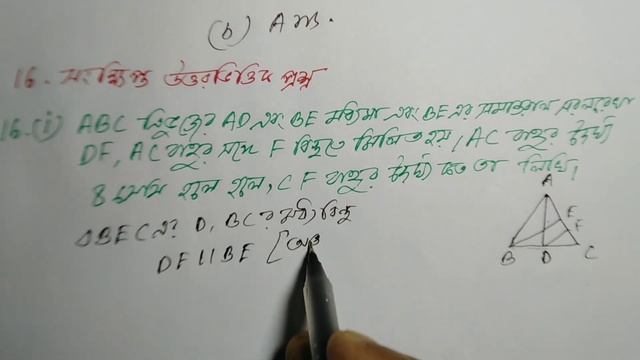 (b) Ans.
16. সংক্ষিপ্ত উত্তরভিত্তিক প্রশ্ন
16.(i) ABC ত্রিভুজের AD এবং BE মধ্যমা এবং BE এর সমান্তরাল সরলরেখা
DF, AC বাহুর সঙ্গে F বিন্দুতে মিলিত হয়। AC বাহুর দৈর্ঘ্য
8 সেমি হলে হলে, CF বাহুর দৈর্ঘ্য কত তা লিখি।
A
E
F
B D C
ΔBEC এর D, BC র মধ্যবিন্দু
DF || BE [